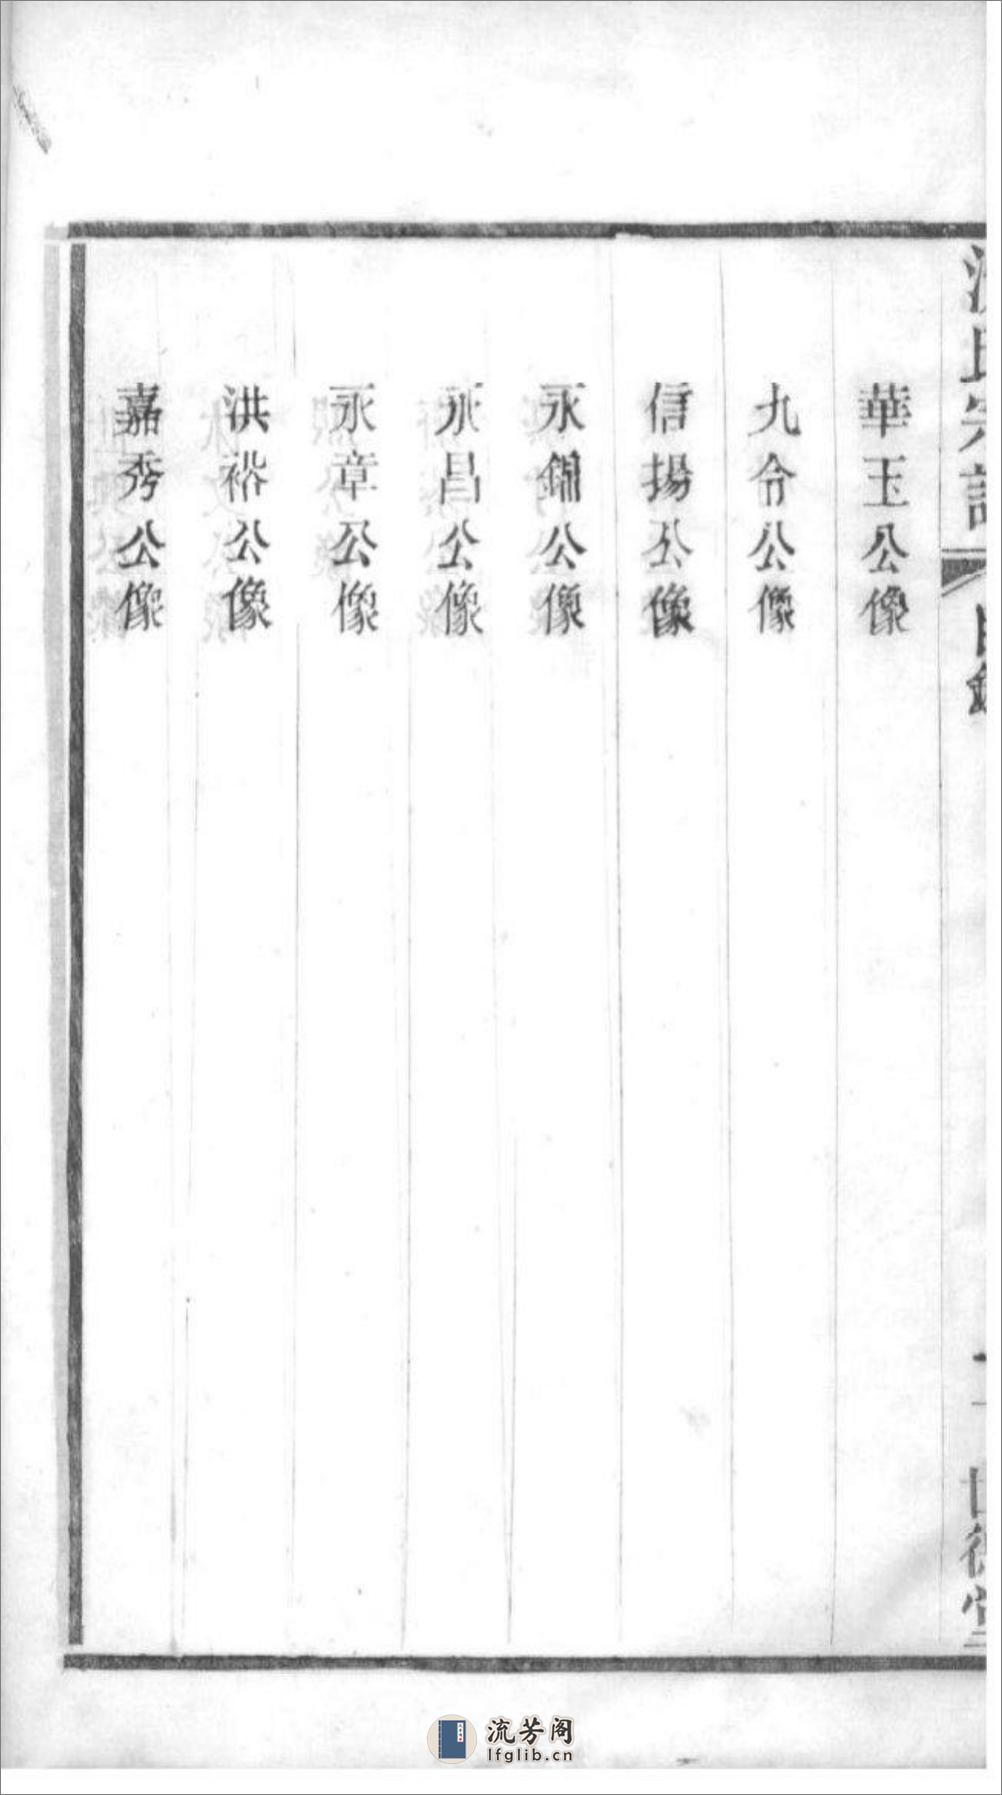 氏宗譜
目錄
世德堂
華玉公像
九令公像
信揚公像
永錦公像
永昌公像
永章公像
洪裕公像
嘉秀公像
流芳阁
lfglib.cn